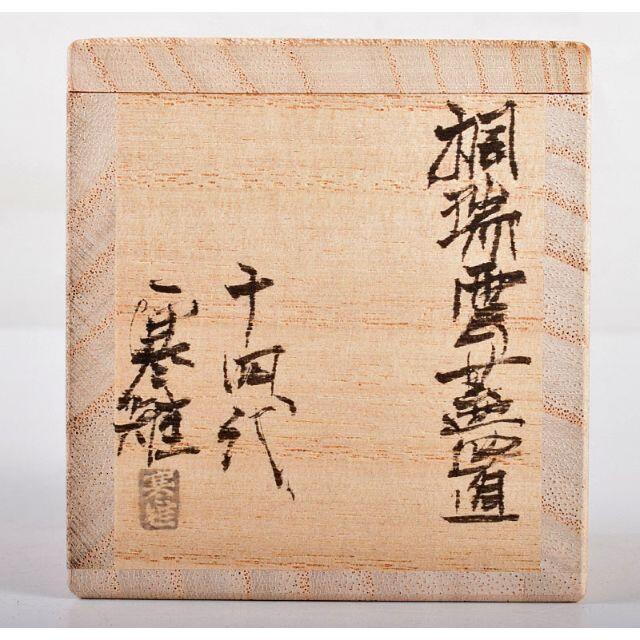 桐瑞雲蓋置
十四代
寒雉
寒雉